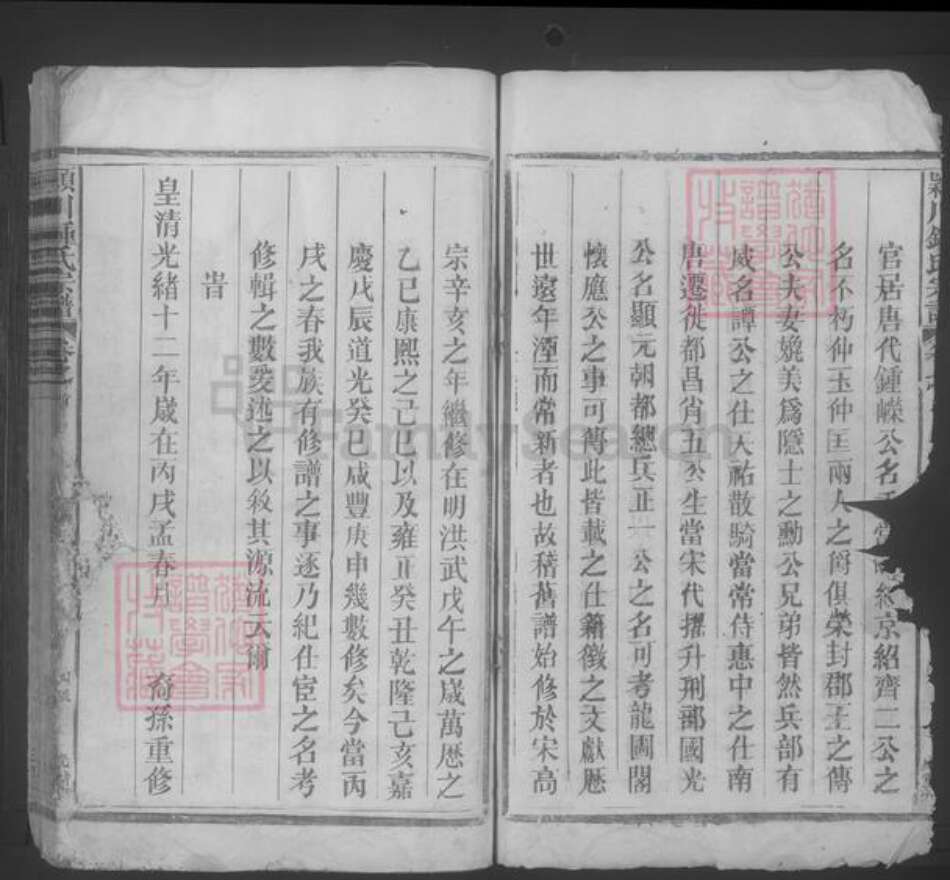 官居唐代鍾嶸公名
京紹齊二公之
名不朽仲玉仲匡兩人之爵俱榮封郡王之傳
公夫妻媲美爲隱士之勳公兄弟皆然兵部有
威名譚公之仕天祐散騎當常侍惠中之仕南
唐遷徙都昌肖五公生當宋代擢升刑部國光
公名顯元朝都總兵正一公之名可考龍圖閣
懷應公之事可傳此皆載之仕籍徵之文獻歷
世遠年湮而常新者也故稽舊譜始修於宋高
宗辛亥之年繼修在明洪武戊午之歲萬歷之
乙巳康熙之己巳以及雍正癸丑乾隆己亥嘉
慶戊辰道光癸巳咸豐庚申幾數修矣今當丙
戌之春我族有修譜之事逐乃紀仕宦之名考
修輯之數爰述之以敘其源流云爾
旹
皇清光緒十二年歲在丙戌孟春月 裔孫重修
潁川鍾氏宗譜
潁川鍾氏宗譜
FamilySearch